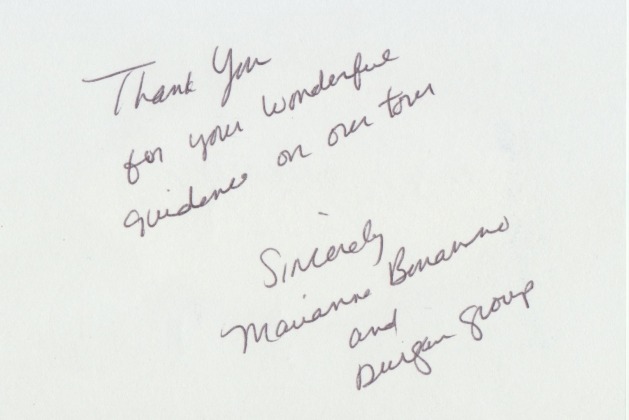 Thank You
for your wonderful
guidance on our tour
Sincerely
Marianne Bonanno
and
Durgan group